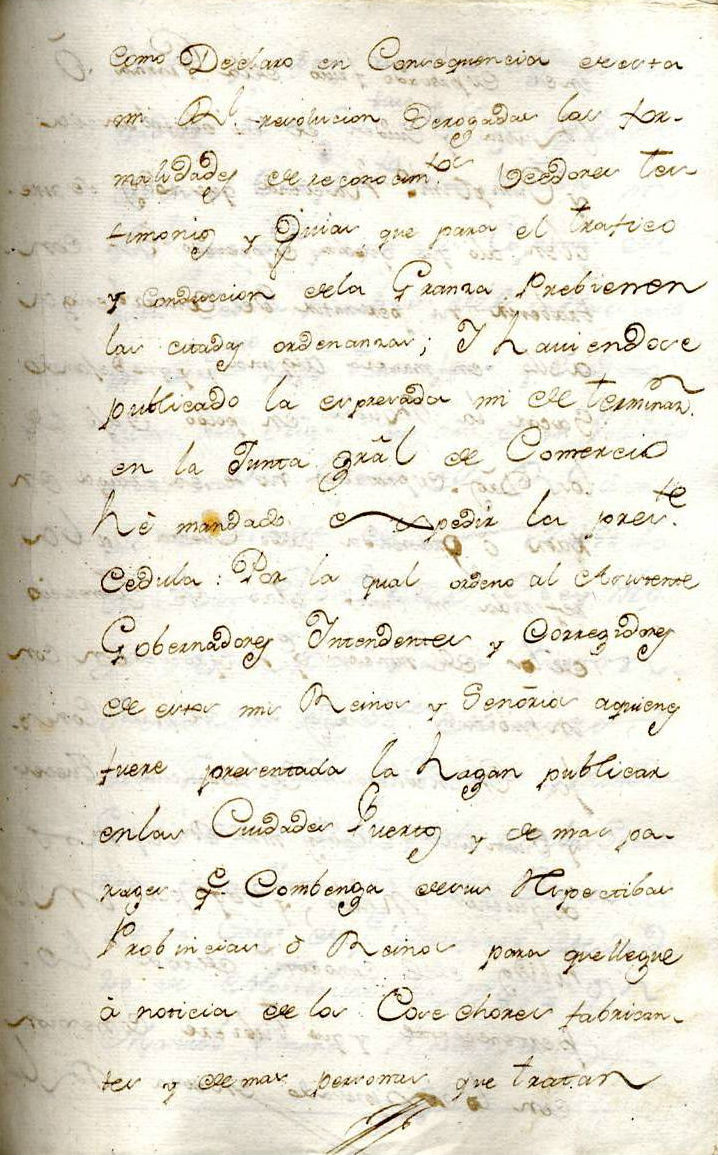 como Declaro en Consequencia de esta
mi Rl. resolucion Derogadas las for-
malidades de reconocimtos. Veedores tes
timonios y Guias que para el trafico
y conduccion de la Granza Prebienen
las citadas ordenanzas; Y haviendose
publicado la expresada mi determinan.
en la Junta gral de Comercio
hè mandado expedir la preste.
Cedula: Por la qual ordeno al Asistente
Gobernadores Intendentes y Corregidores
de estos mis Reinos y Señorios aquienes
fuere presentada la hagan publicar
en las Ciudades Puertos y demas pa-
rages q Combenga de sus Respectibas
Probincias ò Reinos para que llegue
à noticia de los Cosechores fabrican-
tes y demas personas que tratan